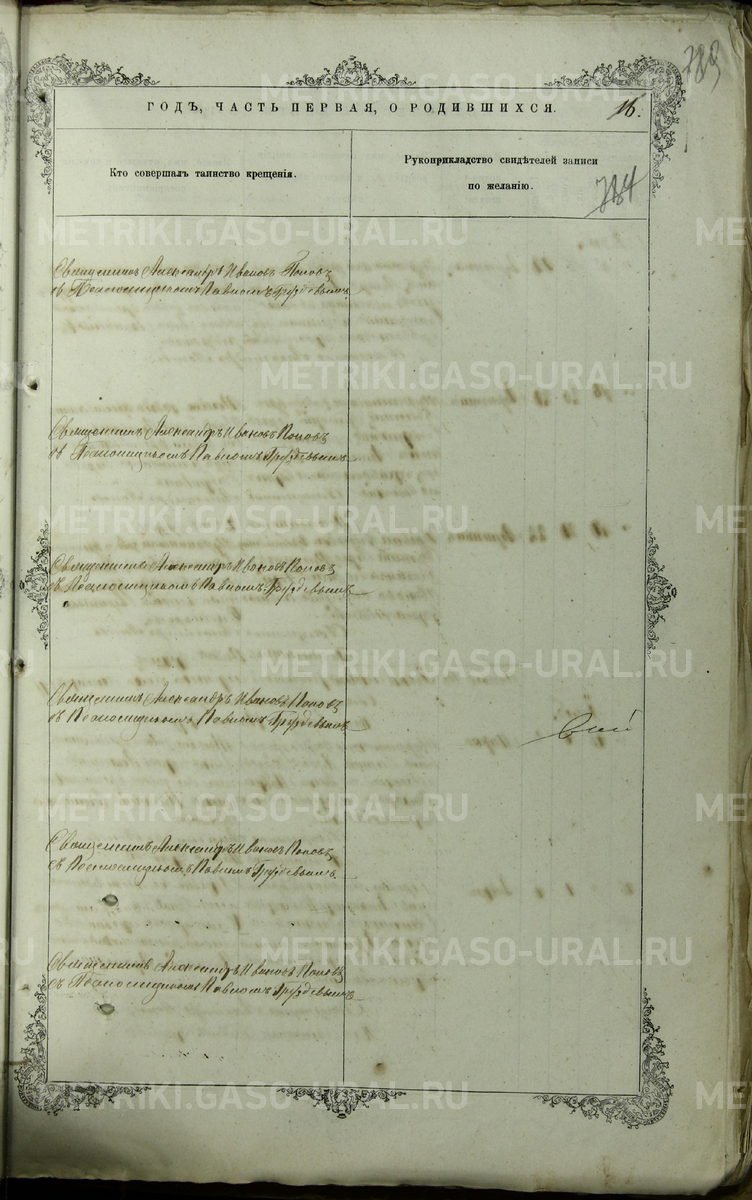 789
ГОДЪ, ЧАСТЬ ПЕРВАЯ, О РОДИВШИХСЯ.
16.
Кто совершалъ таинство крещенія.
Рукоприкладство свидѣтелей записи
по желанію.
784
Священникъ Александръ Ивановъ Поповъ
съ Псаломщикомъ Павломъ
Священникъ Александръ Ивановъ Поповъ
съ Псаломщикомъ Павломъ
Священникъ Александръ Ивановъ Поповъ
съ Псаломщикомъ Павломъ
Священникъ Александръ Ивановъ Поповъ
съ Псаломщикомъ Павломъ
Священникъ Александръ Ивановъ Поповъ
съ Псаломщикомъ Павломъ
Священникъ Александръ Ивановъ Поповъ
съ Псаломщикомъ Павломъ
METRIKI.GASO-URAL.RU